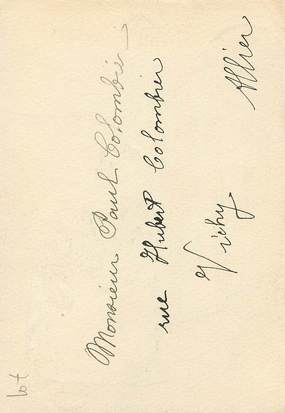 Monsieur Paul Colombier
rue Hubert Colombier
Vichy
Allier
lot